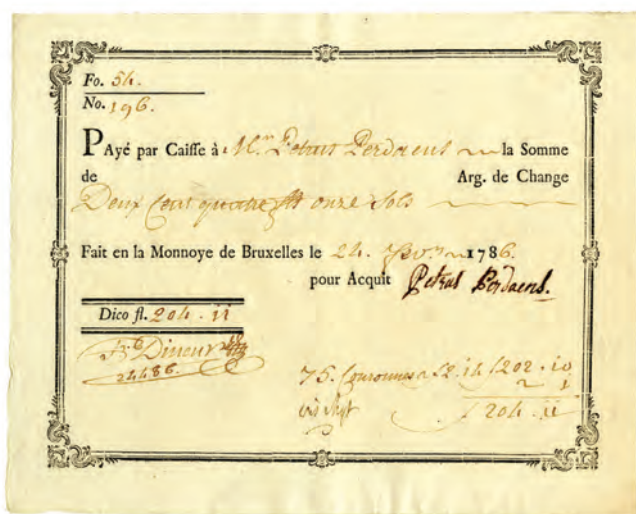 Fo. 54.
No. 196.
Payé par Caisse à Mr. Petrus Perdaens la Somme
de Arg. de Change
Deux Cent quatre fl onze Sols
Fait en la Monnoye de Bruxelles le 24. 1786.
pour Acquit Petrus Perdaens.
Dico fl. 204 - 11
Dineur
24486.
75. Couronnes a f 2.14 f 202 - 10
2 1
f 204 - 11